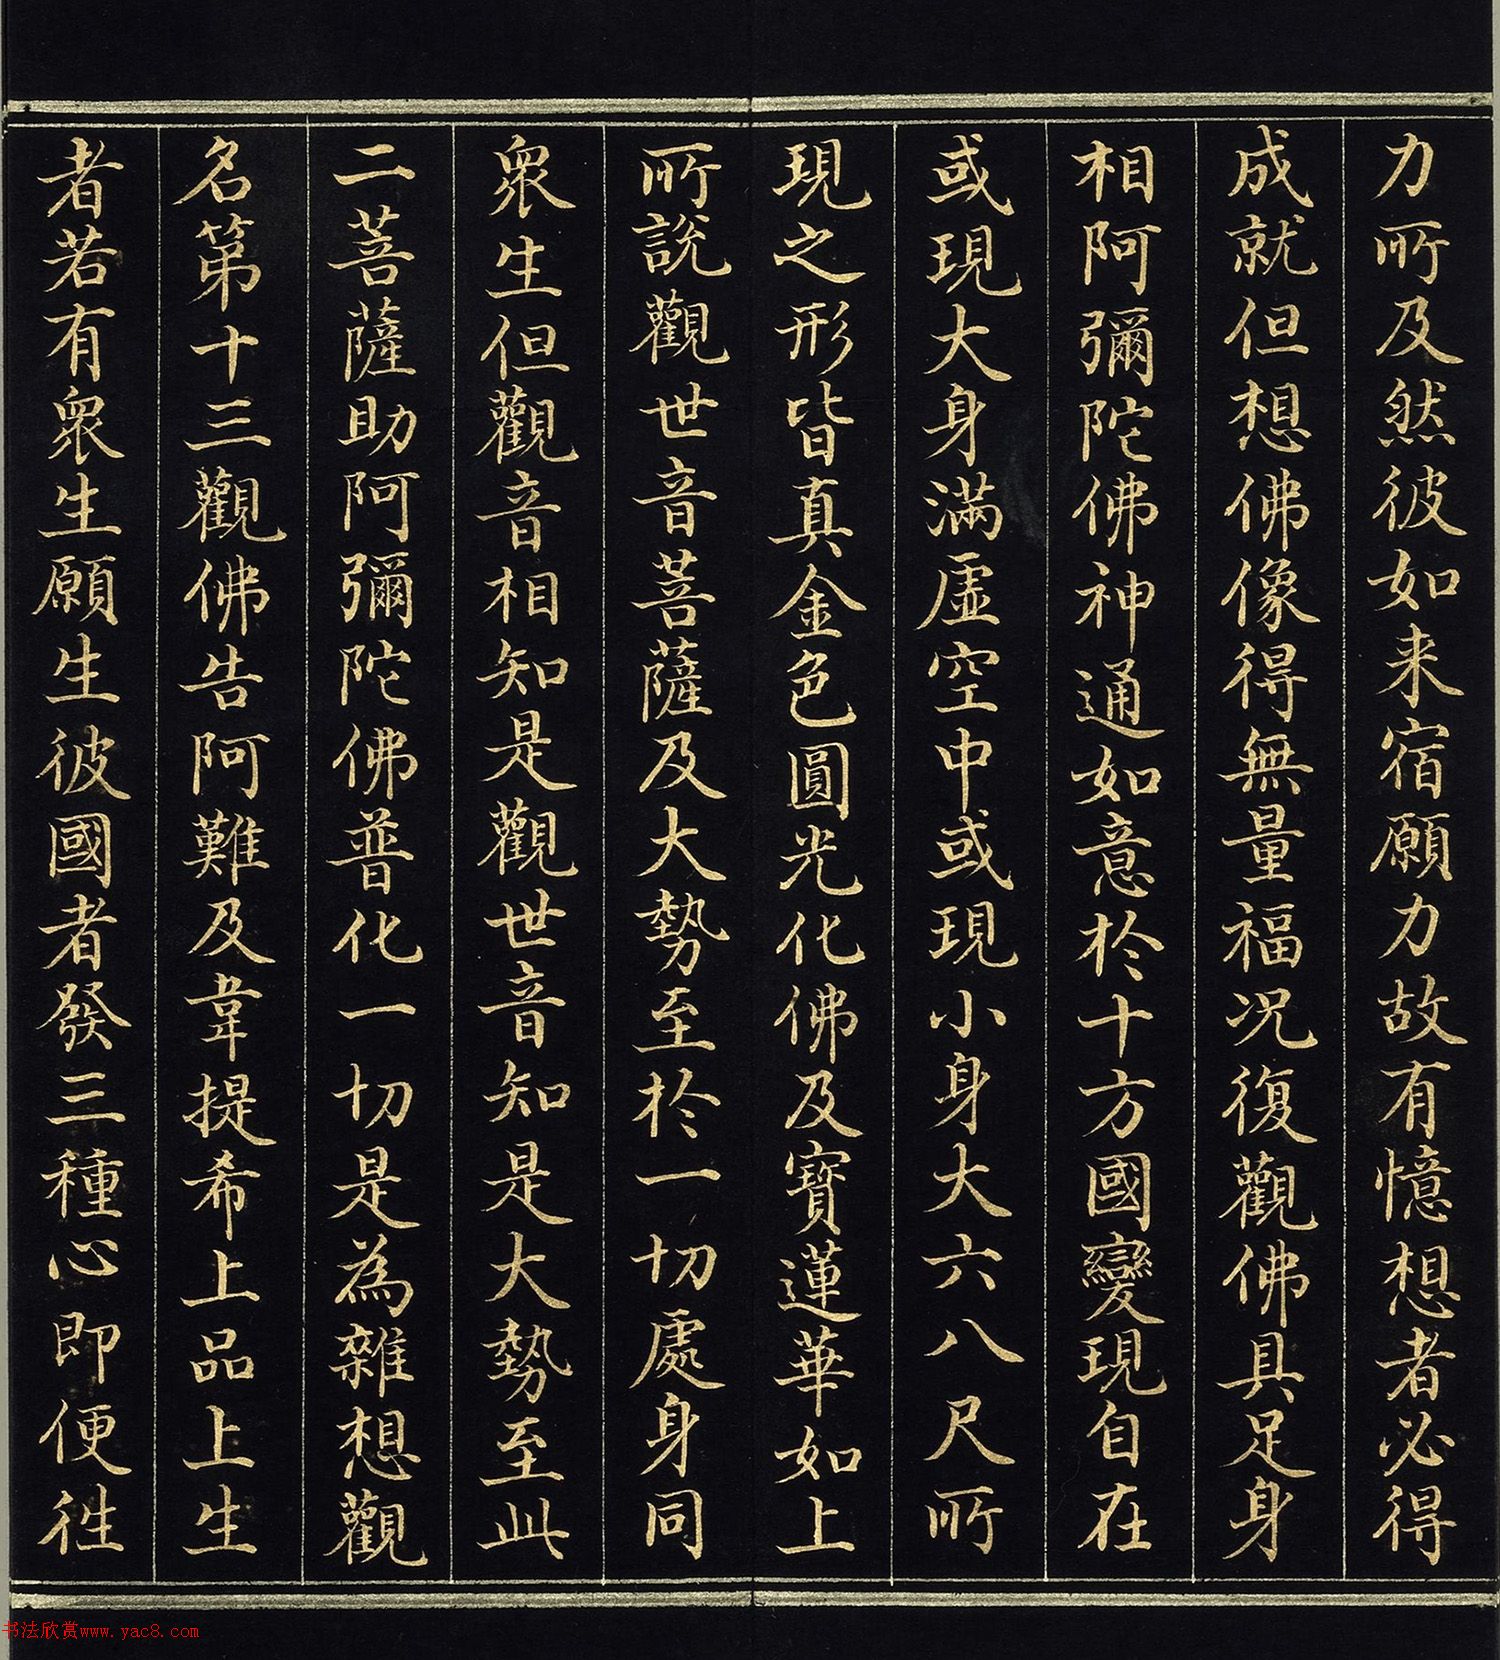 力所及然彼如来宿願力故有憶想者必得
成就但想佛像得無量福況復觀佛具足身
相阿彌陀佛神通如意於十方國變現自在
或現大身滿虛空中或現小身大六八尺所
現之形皆真金色圓光化佛及寶蓮華如上
所說觀世音菩薩及大勢至於一切處身同
眾生但觀音相知是觀世音知是大勢至此
二菩薩助阿彌陀佛普化一切是為雜想觀
名第十三觀佛告阿難及韋提希上品上生
者若有眾生願生彼國者發三種心即便徃
书法欣赏www.yac8.com